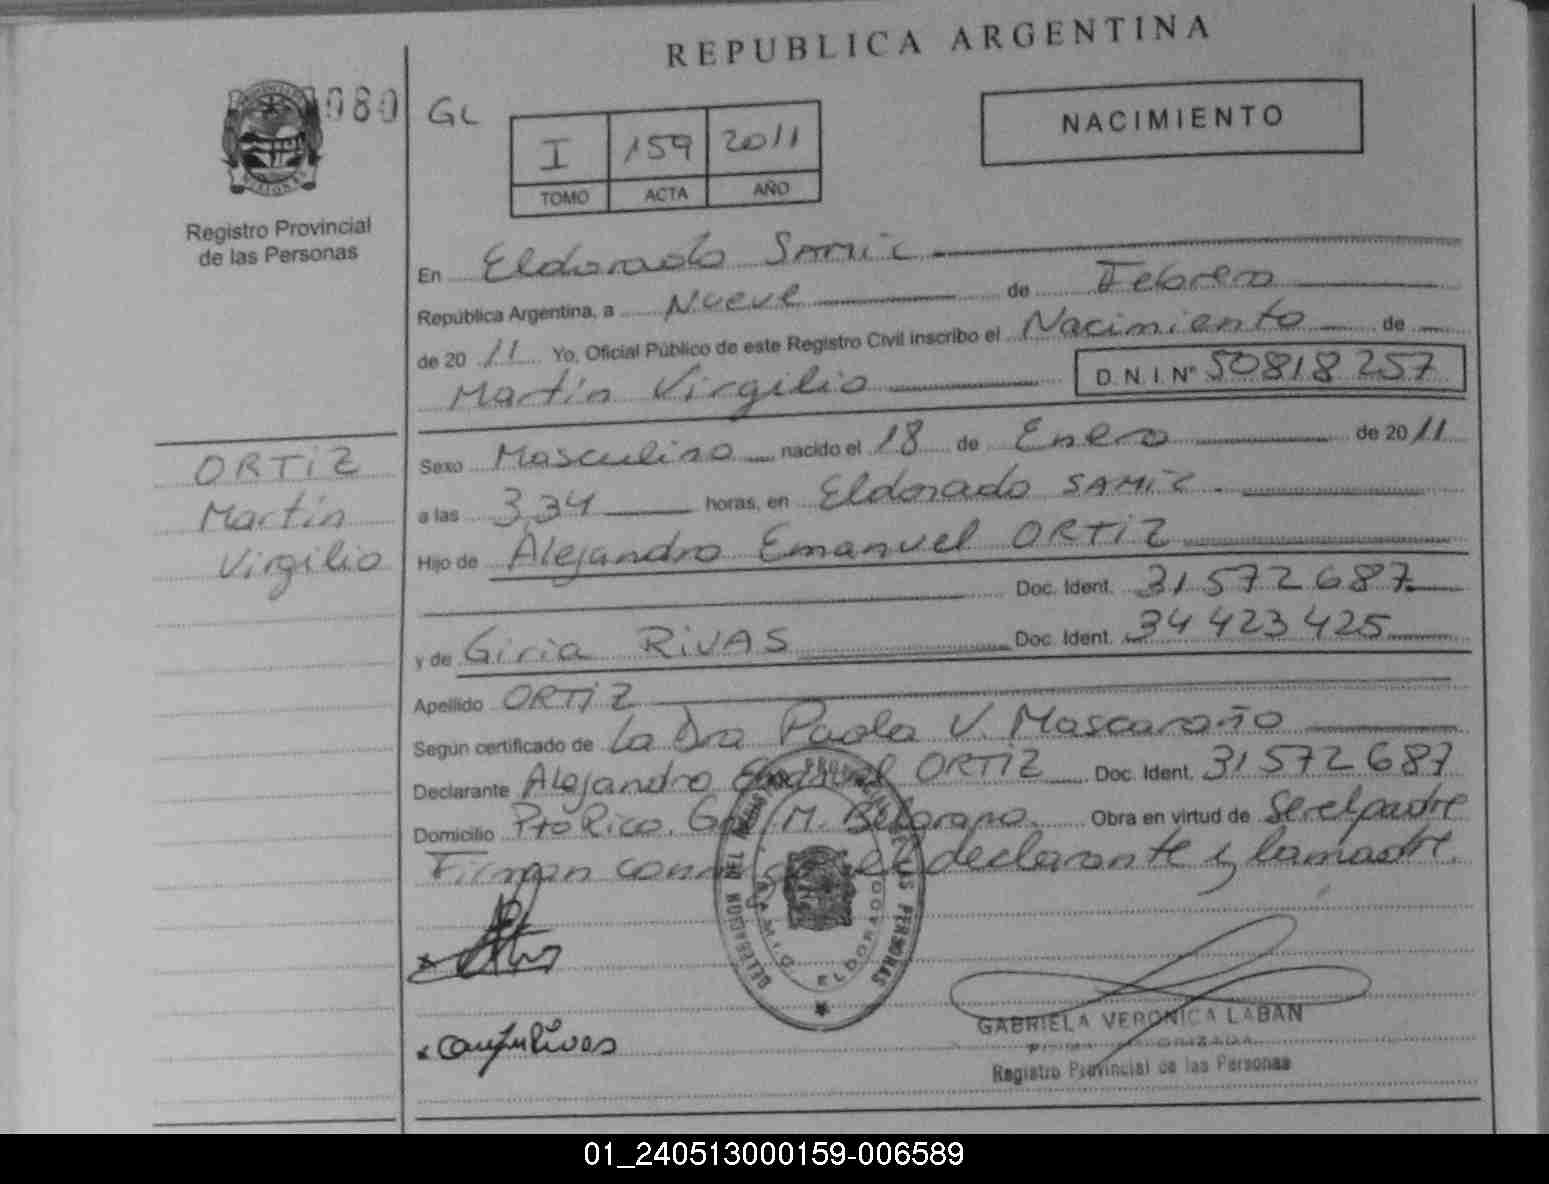 REPUBLICA ARGENTINA
080 GL
NACIMIENTO
I 159 2011
TOMO ACTA AÑO
Registro Provincial
de las Personas
En Eldorado SAMIC
República Argentina, a Nueve de Febrero
de 20 11 Yo, Oficial Público de este Registro Civil inscribo el Nacimiento de
Martín Virgilio D.N.I. Nº 50818257
ORTIZ
Martín
Virgilio
Sexo Masculino nacido el 18 de Enero de 20 11
a las 3,34 horas, en Eldorado SAMIC
Hijo de Alejandro Emanuel ORTIZ
Doc. Ident. 31572687
y de Giria RIVAS Doc. Ident. 34423425
Apellido ORTIZ
Según certificado de La Dra Paola V.
Declarante Alejandro Emanuel ORTIZ Doc. Ident. 31572687
Domicilio Pto Rico. Gral M. Belgrano. Obra en virtud de Ser el padre
Firman el declarante y la madre.
DELEGACION DEL REGISTRO PROVINCIAL DE LAS PERSONAS
SAMIC ELDORADO
GABRIELA VERONICA LABAN
FIRMA AUTORIZADA
Registro Provincial de las Personas
01_240513000159-006589